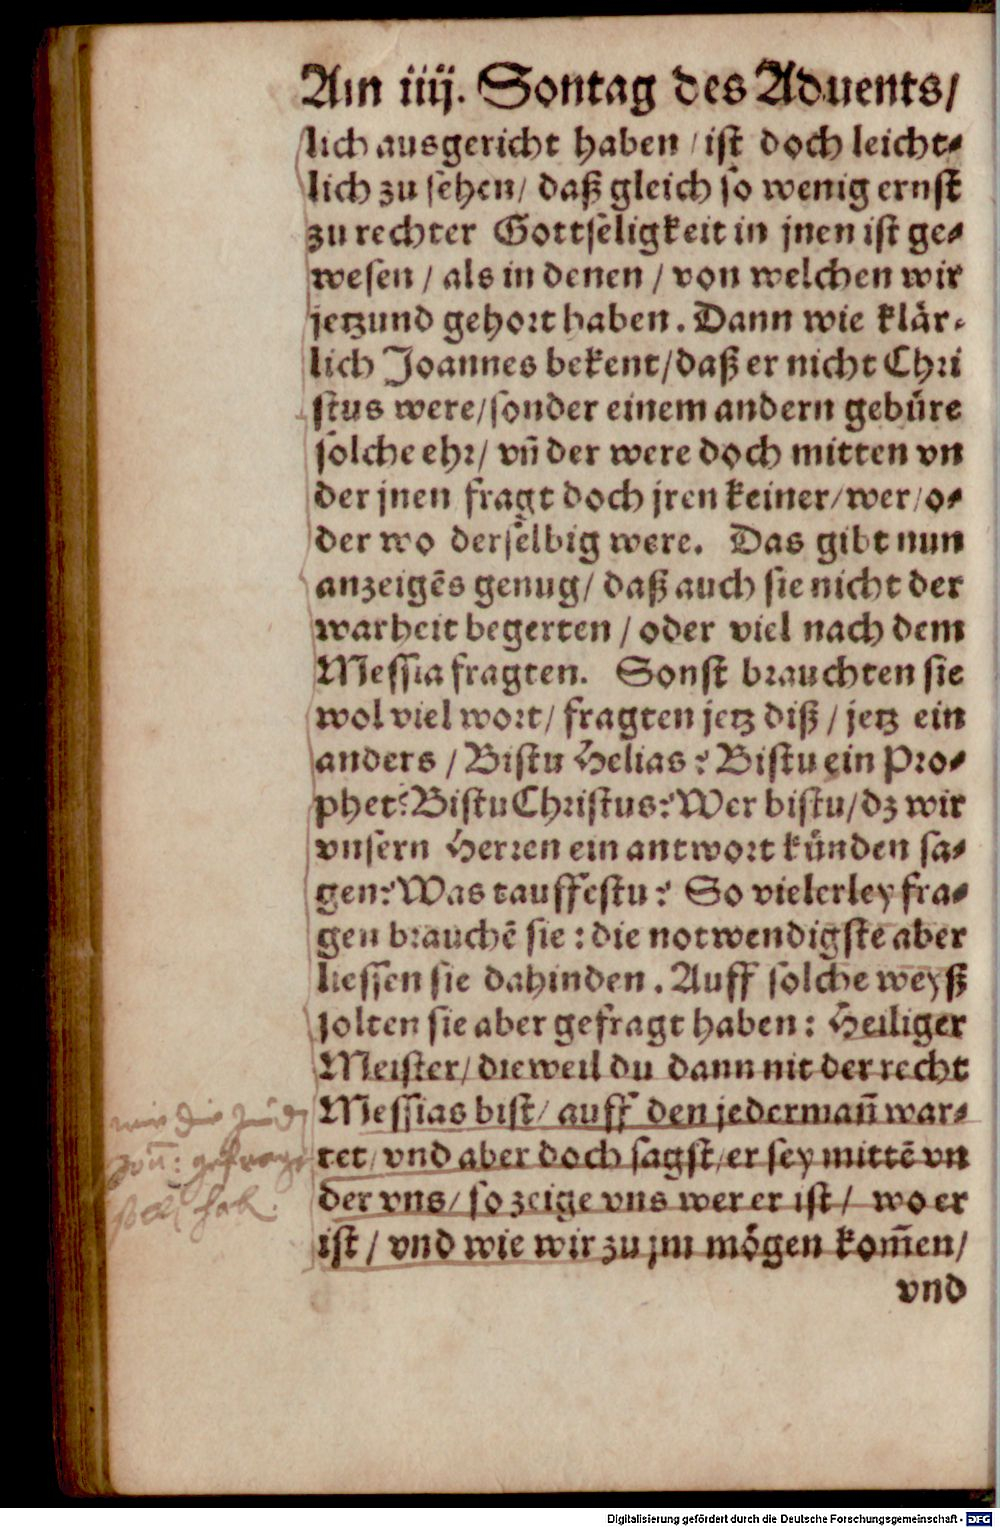 Am iiij. Sontag des Aduents/
lich ausgericht haben / ist doch leicht⸗
lich zu sehen / daß gleich so wenig ernst
zu rechter Gottseligkeit in jnen ist ge⸗
wesen / als in denen / von welchen wir
jetzund gehort haben. Dann wie klär⸗
lich Joannes bekent/daß er nicht Chri
stus were/sonder einem andern gebüre
solche ehr/ vñ der were doch mitten vn
der jnen fragt doch jren keiner/wer/o⸗
der wo derselbig were. Das gibt nun
anzeigẽs genug/ daß auch sie nicht der
warheit begerten / oder viel nach dem
Messia fragten. Sonst brauchten sie
wol viel wort/ fragten jetz diß / jetz ein
anders / Bistu Helias? Bistu ein Pro⸗
phet? Bistu Christus? Wer bistu/dz wir
vnsern Herren ein antwort künden sa⸗
gen? Was tauffestu? So vielerley fra⸗
gen brauchẽ sie : die notwendigste aber
liessen sie dahinden. Auff solche weyß
solten sie aber gefragt haben: Heiliger
Meister/ dieweil du dann nit der recht
Messias bist/ auff den jedermañ war⸗
tet/ vnd aber doch sagst/er sey mittẽ vn
der vns/ so zeige vns wer er ist/ wo er
ist / vnd wie wir zu jm mögen kom̃en/
vnd
wie die
Digitalisierung gefördert durch die Deutsche Forschungsgemeinschaft - DFG